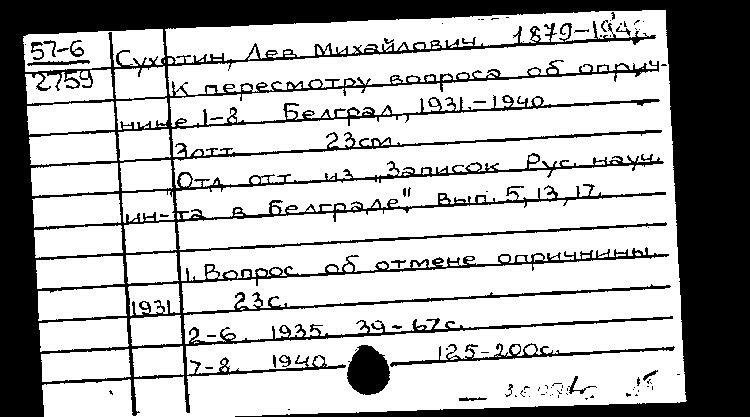 57-6
2759
Сухотин, Лев Михайлович. 1879-194
К пересмотру вопроса об оприч-
нине. 1-8. Белград, 1931.-1940.
3отт. 23см.
"Отд. отт. из „Записок Рус. науч.
ин-та в Белграде", вып. 5, 13, 17.
1. Вопрос об отмене опричнины.
1931. 23с.
2-6. 1935. 39-67с.
7-8. 1940 125-200с.